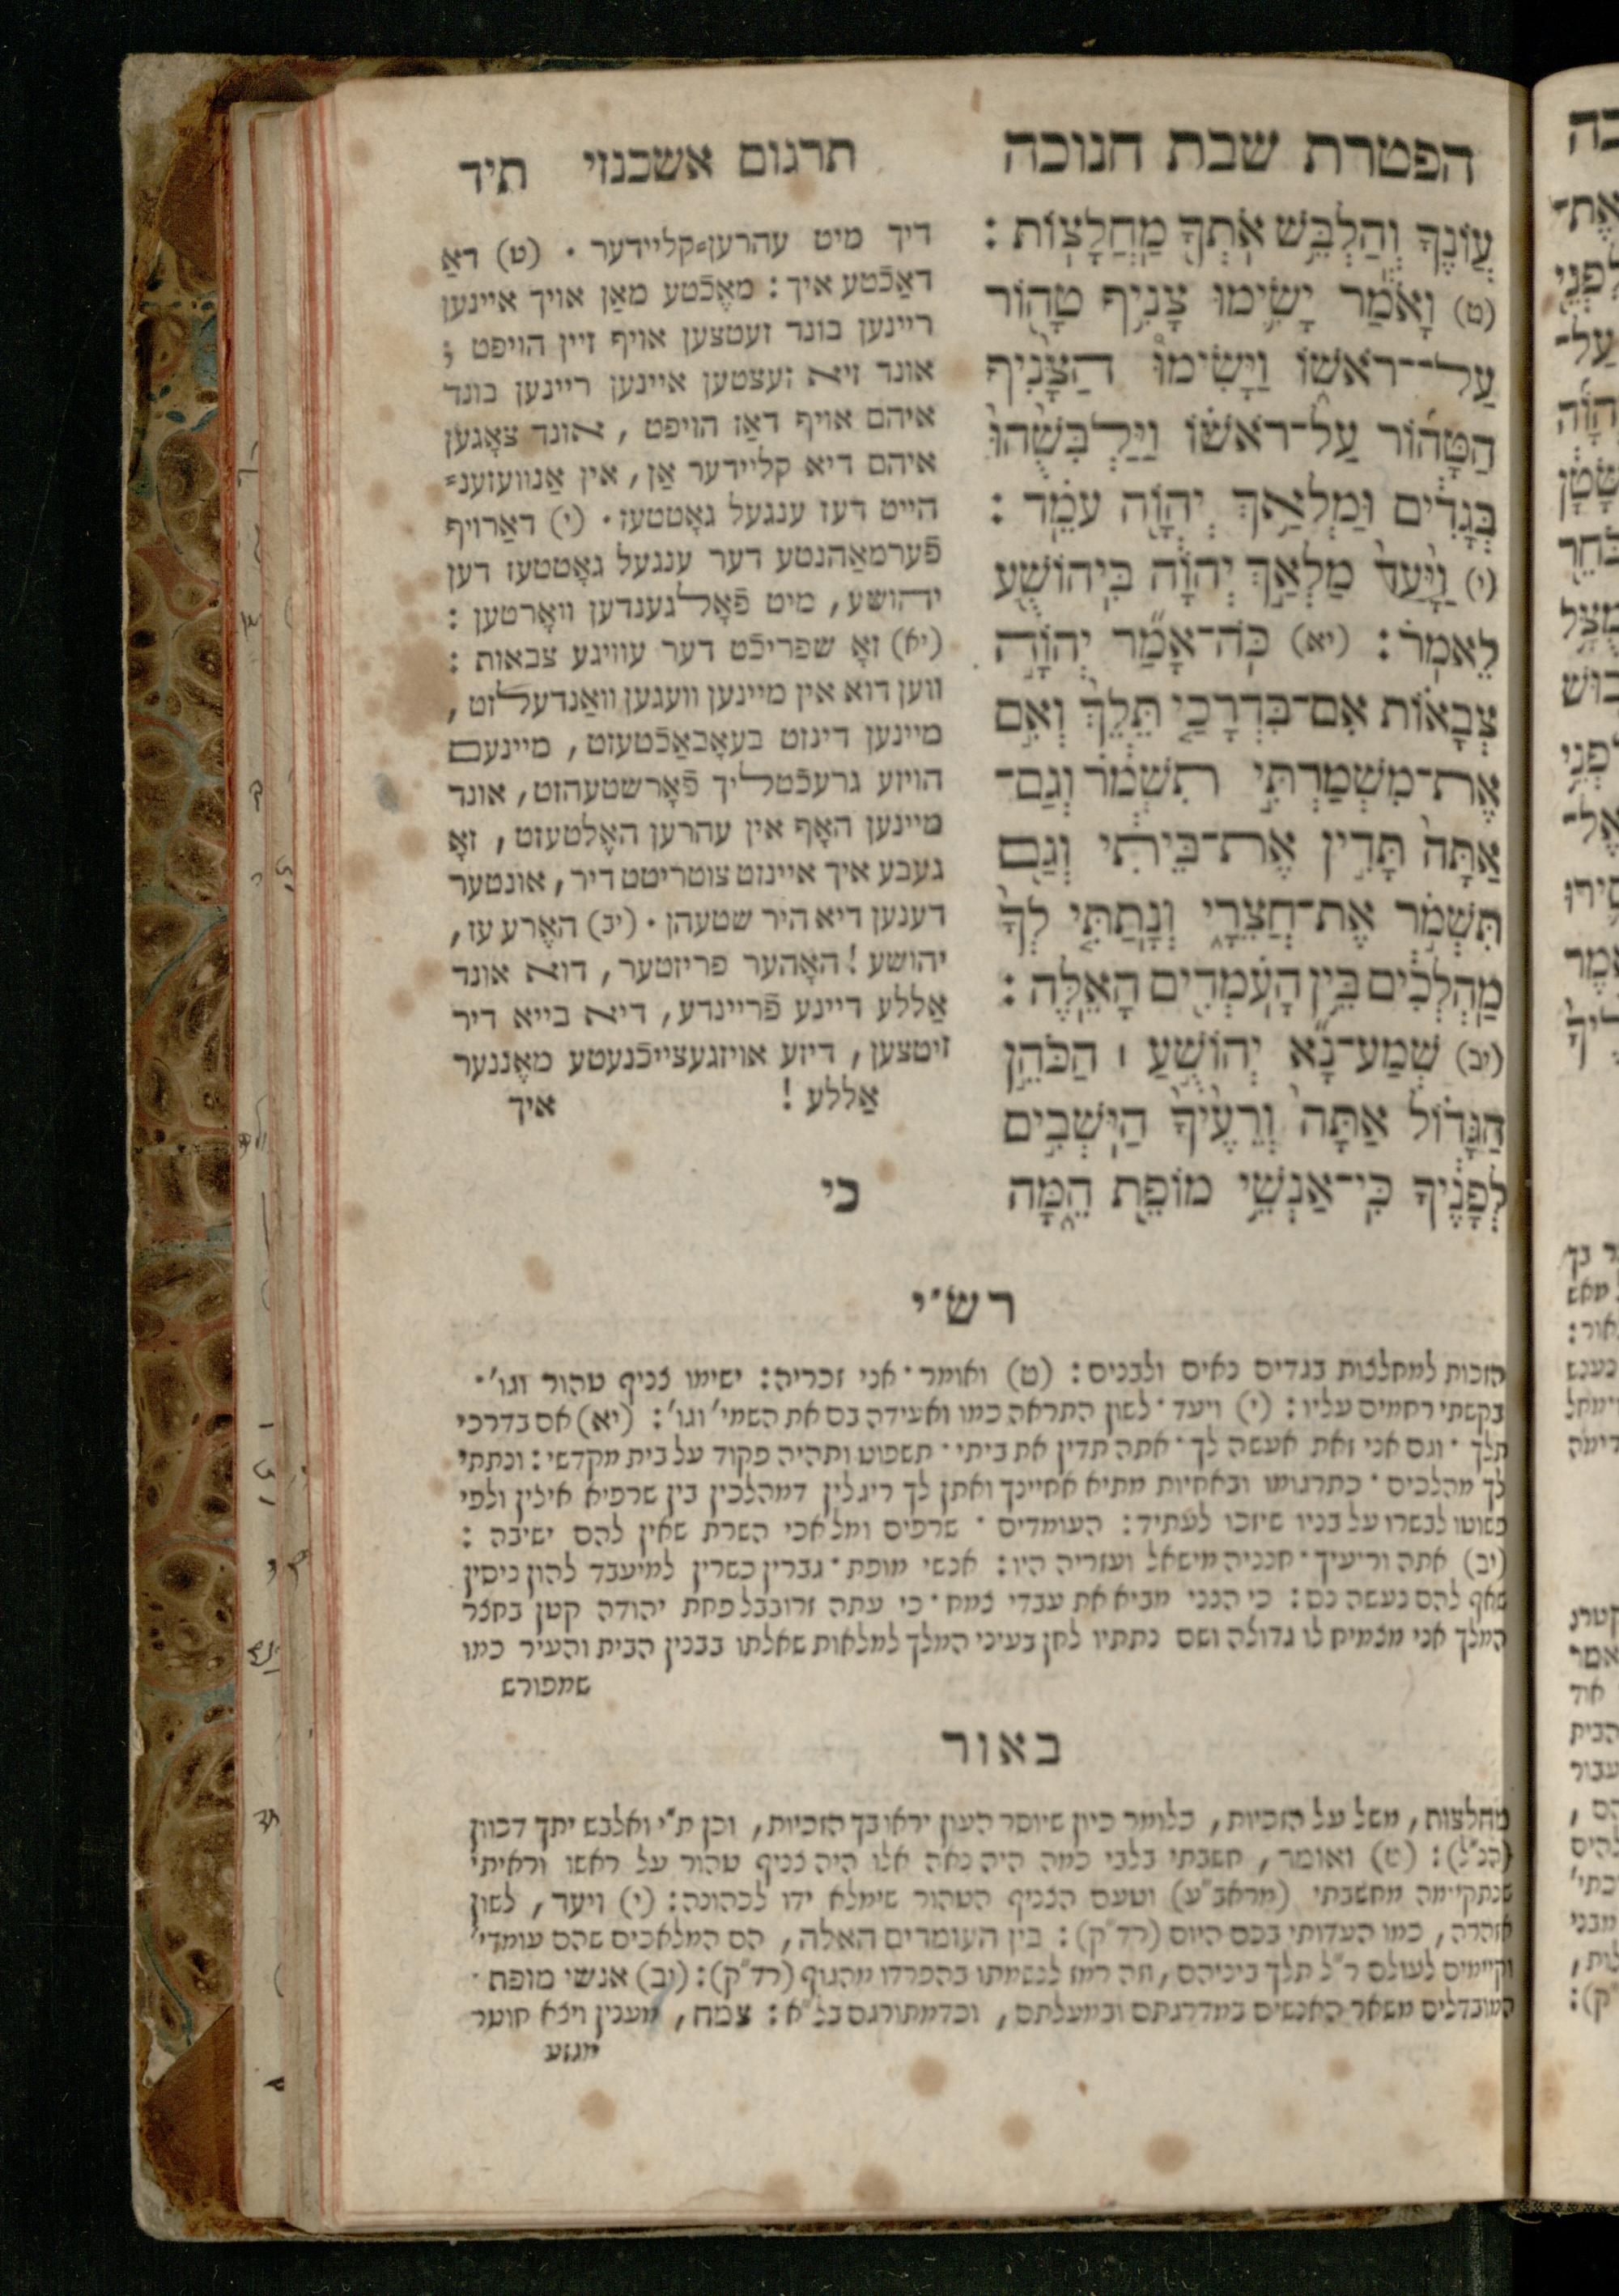 הפטרת שבת חנוכה
תרגום אשכנזי
תיד
עֲוֺנֶךָ וְהַלְבֵּשׁ אֹתְךָ מַחֲלָצוֹת:
(ט) וָאֹמַר יָשִׂימוּ צָנִיף טָהוֹר
עַל־רֹאשׁוֹ וַיָּשִׂימוּ הַצָּנִיף
הַטָּהוֹר עַל־רֹאשׁוֹ וַיַּלְבִּשֻׁהוּ
בְּגָדִים וּמַלְאַךְ יְהוָֹה עֹמֵד:
(י) וַיָּעַד מַלְאַךְ יְהוָֹה בִּיהוֹשֻׁעַ
לֵאמֹר: (יא) כֹּה־אָמַר יְהוָֹה
צְבָאוֹת אִם־בִּדְרָכַי תֵּלֵךְ וְאִם
אֶת־מִשְׁמַרְתִּי תִשְׁמֹר וְגַם־
אַתָּה תָּדִין אֶת־בֵּיתִי וְגַם
תִּשְׁמֹר אֶת־חֲצֵרָי וְנָתַתִּי לְךָ
מַהְלְכִים בֵּין הָעֹמְדִים הָאֵלֶּה:
(יב) שְׁמַע־נָא יְהוֹשֻׁעַ ׀ הַכֹּהֵן
הַגָּדוֹל אַתָּה וְרֵעֶיךָ הַיֹּשְׁבִים
לְפָנֶיךָ כִּי־אַנְשֵׁי מוֹפֵת הֵמָּה
כי
דיך מיט עהרען⸗קליידער. (ט) דאַ
דאַכֿטע איך: מאֶכֿטע מאַן אויך איינען
ריינען בונד זעטצען אויף זיין הויפט;
אונד זיא זעצטען איינען ריינען בונד
איהם אויף דאַז הויפט, אונד צאָגען
איהם דיא קליידער אַן, אין אַנוועזענ⸗
הייט דעז ענגעל גאָטטעז. (י) דאַרויף
פֿערמאַהנטע דער ענגעל גאָטטעז דען
יהושע, מיט פֿאָלגענדען וואָרטען:
(יא) זאָ שפריכֿט דער עוויגע צבאות:
ווען דוא אין מיינען וועגען וואַנדעלזט,
מיינען דינזט בעאָבאַכֿטעזט, מיינעם
הויזע גרעכֿטליך פֿאָרשטעהזט, אונד
מיינען האָף אין עהרען האֶלטעזט, זאָ
געבע איך איינזט צוטריטט דיר, אונטער
דענען דיא היר שטעהן. (יב) האֶרע עז,
יהושע! האָהער פריזטער, דוא אונד
אַללע דיינע פֿריינדע, דיא בייא דיר
זיטצען, דיזע אויזגעצייכֿנעטע מאֶננער
אַללע!
איך
רש״י
הזכות למחלצות בגדים נאים ולבנים: (ט) ואומר. אני זכריה: ישימו צניף טהור וגו'.
בקשתי רחמים עליו: (י) ויעד. לשון התראה כמו ואעידה בם את השמי' וגו': (יא) אם בדרכי
תלך. וגם אני זאת אעשה לך. אתה תדין את ביתי. תשפוט ותהיה פקוד על בית מקדשי: ונתתי
לך מהלכים. כתרגומו ובאחיות מתיא אחיינך ואתן לך ריגלין דמהלכין בין שרפיא אילין ולפי
פשוטו לבשרו על בניו שיזכו לעתיד: העומדים. שרפים ומלאכי השרת שאין להם ישיבה:
(יב) אתה וריעיך. חנניה מישאל ועזריה היו: אנשי מופת. גברין כשרין למיעבד להון ניסין
שאף להם נעשה נס: כי הנני מביא את עבדי צמח. כי עתה זרובבל פחת יהודה קטן בחצר
המלך אני מצמיח לו גדולה ושם נתתיו לחן בעיני המלך למלאות שאלתו בבנין הבית והעיר כמו
שמפורש
באור
מחלצות, משל על הזכיות, כלומר כיון שיוסר העון יראו בך הזכיות, וכן ת״י ואלבש יתך דכוון
(הנ״ל): (ט) ואומר, חשבתי בלבי כמה היה נאה אלו היה צניף טהור על ראשו וראיתי
שנתקיימה מחשבתי (מראב״ע) וטעם הצניף הטהור שימלא ידו לכהונה: (י) ויעד, לשון
אזהרה, כמו העדותי בכם היום (רד״ק): בין העומדים האלה, הם המלאכים שהם עומדי'
וקיימים לעולם ר״ל תלך ביניהם, וזה רמז לנשמתו בהפרדו מהגוף (רד״ק): (יב) אנשי מופת.
המובדלים משאר האנשים במדרגתם ובמעלתם, וכדמתורגם בל״א: צמח, מענין ויצא חוטר
מגזע